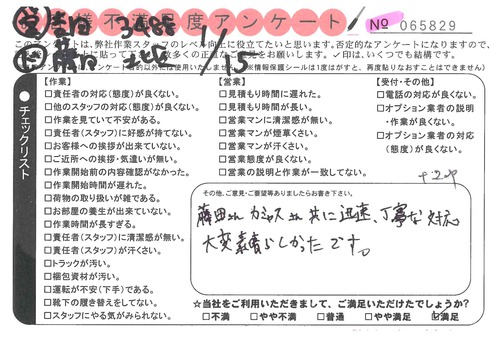 不満足度アンケート No 065829
3488
1/15
このアンケートは、弊社作業スタッフのレベル向上に役立てたいと思います。否定的なアンケートになりますので、
チェックリスト
【作業】
□責任者の対応(態度)が良くない。
□他のスタッフの対応(態度)が良くない。
□作業を見ていて不安がある。
□責任者(スタッフ)に好感が持てない。
□お客様への挨拶が出来ていない。
□ご近所への挨拶・気遣いが無い。
□作業開始前の内容確認がなかった。
□作業開始時間が遅れた。
□荷物の取り扱いが雑である。
□お部屋の養生が出来ていない。
□作業時間が長すぎる。
□責任者(スタッフ)に清潔感が無い。
□責任者(スタッフ)が汗くさい。
□トラックが汚い。
□梱包資材が汚い。
□運転が不安(下手)である。
□靴下の履き替えをしてない。
□スタッフにやる気がみられない。
【営業】
□見積もり時間に遅れた。
□見積もり時間が長い。
□営業マンに清潔感が無い。
□営業マンが煙草くさい。
□営業マンが汗くさい。
□営業態度が良くない。
□営業の説明と作業が一致してない。
【受付・その他】
□電話の対応が良くない。
□オプション業者の説明
・作業が良くない。
□オプション業者の対応
(態度)が良くない。
その他、ご意見・ご要望等ありましたらお書き下さい。
藤田さん カミヤスさん 共に迅速、丁寧な対応
大変素晴らしかったです。
☆当社をご利用いただきまして、ご満足いただけたでしょうか?
□不満 □やや不満 □普通 □やや満足 ☑満足